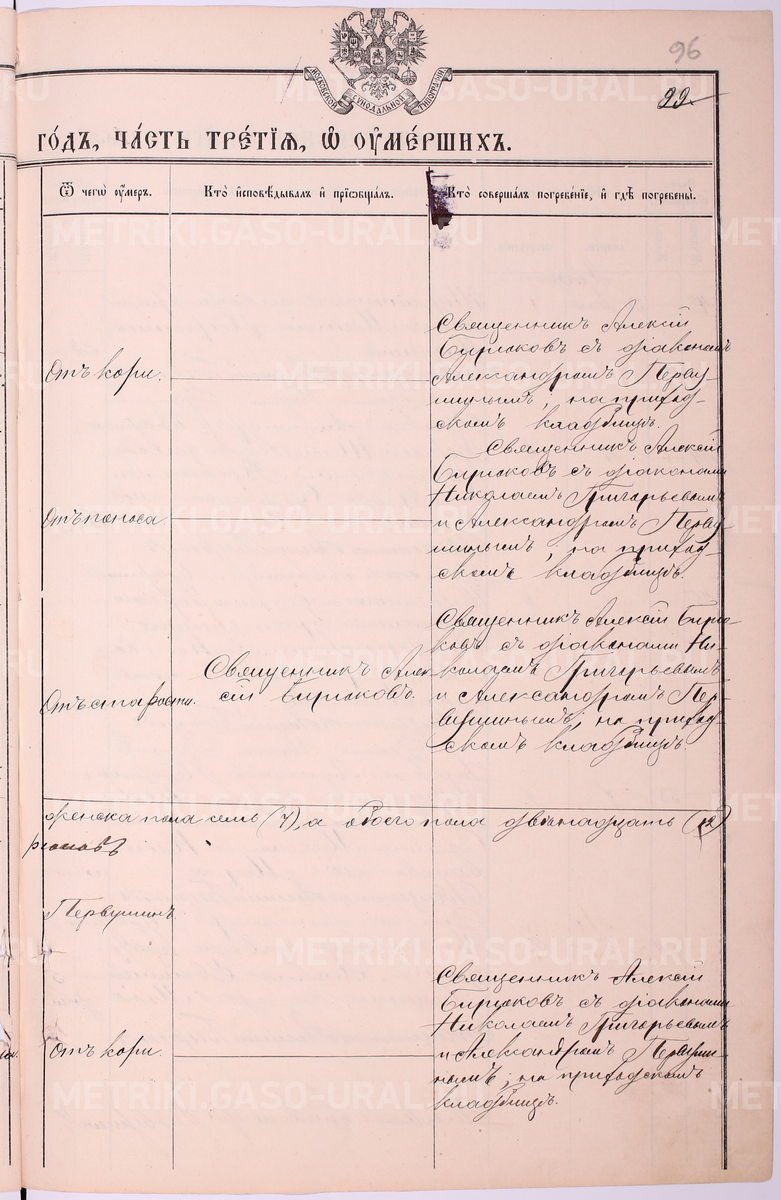 96
МОСКОВСКОЙ СѴНОДАЛЬНОЙ ТИПОГРАФІИ
99
ГО́ДЪ, ЧА́СТЬ ТРЕ́ТІѦ, Ѡ҆ ОУ҆МЕ́РШИХЪ.
Ѿ чегѡ̀ оу҆́мер.
Кто̀ и҆сповѣ́дывалъ и҆ прїѡбща́лъ.
Кто̀ соверша́лъ погребе́нїе, и҆ гдѣ̀ погребены̀.
Отъ кори.
Священникъ Алексій
Бирюковъ съ діакономъ
Александромъ Перву-
шинымъ, на приход-
скомъ кладбищѣ.
Отъ поноса
Священникъ Алексій
Бирюковъ съ діаконами
Николаемъ Григорьевымъ
и Александромъ Перву-
шинымъ, на приход-
скомъ кладбищѣ.
Отъ старости.
Священникъ Алек
сій Бирюковъ.
Священникъ Алексій Бирю-
ковъ съ діаконами Ни-
колаемъ Григорьевымъ
и Александромъ Пер-
вушинымъ, на приход-
скомъ кладбищѣ.
женска пола семь (7), а обоего пола двѣнадцать (12)
рюковъ
Первушинъ
Отъ кори.
Священникъ Алексій
Бирюковъ съ діаконами
Николаемъ Григорьевымъ
и Александромъ Первуши-
нымъ, на приходскомъ
кладбищѣ.
METRIKI.GASO-URAL.RU